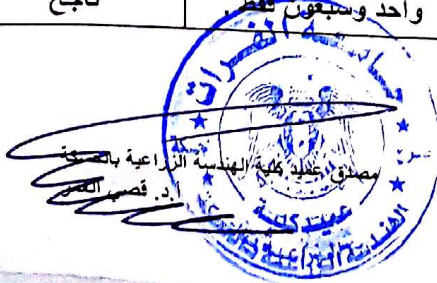 ناجح
واحد وسبعون فقط.
جامعة الفرات
مصدق عميد كلية الهندسة الزراعية بالحسكة
أ.د. قصي
عميد كلية
الهندسة الزراعية